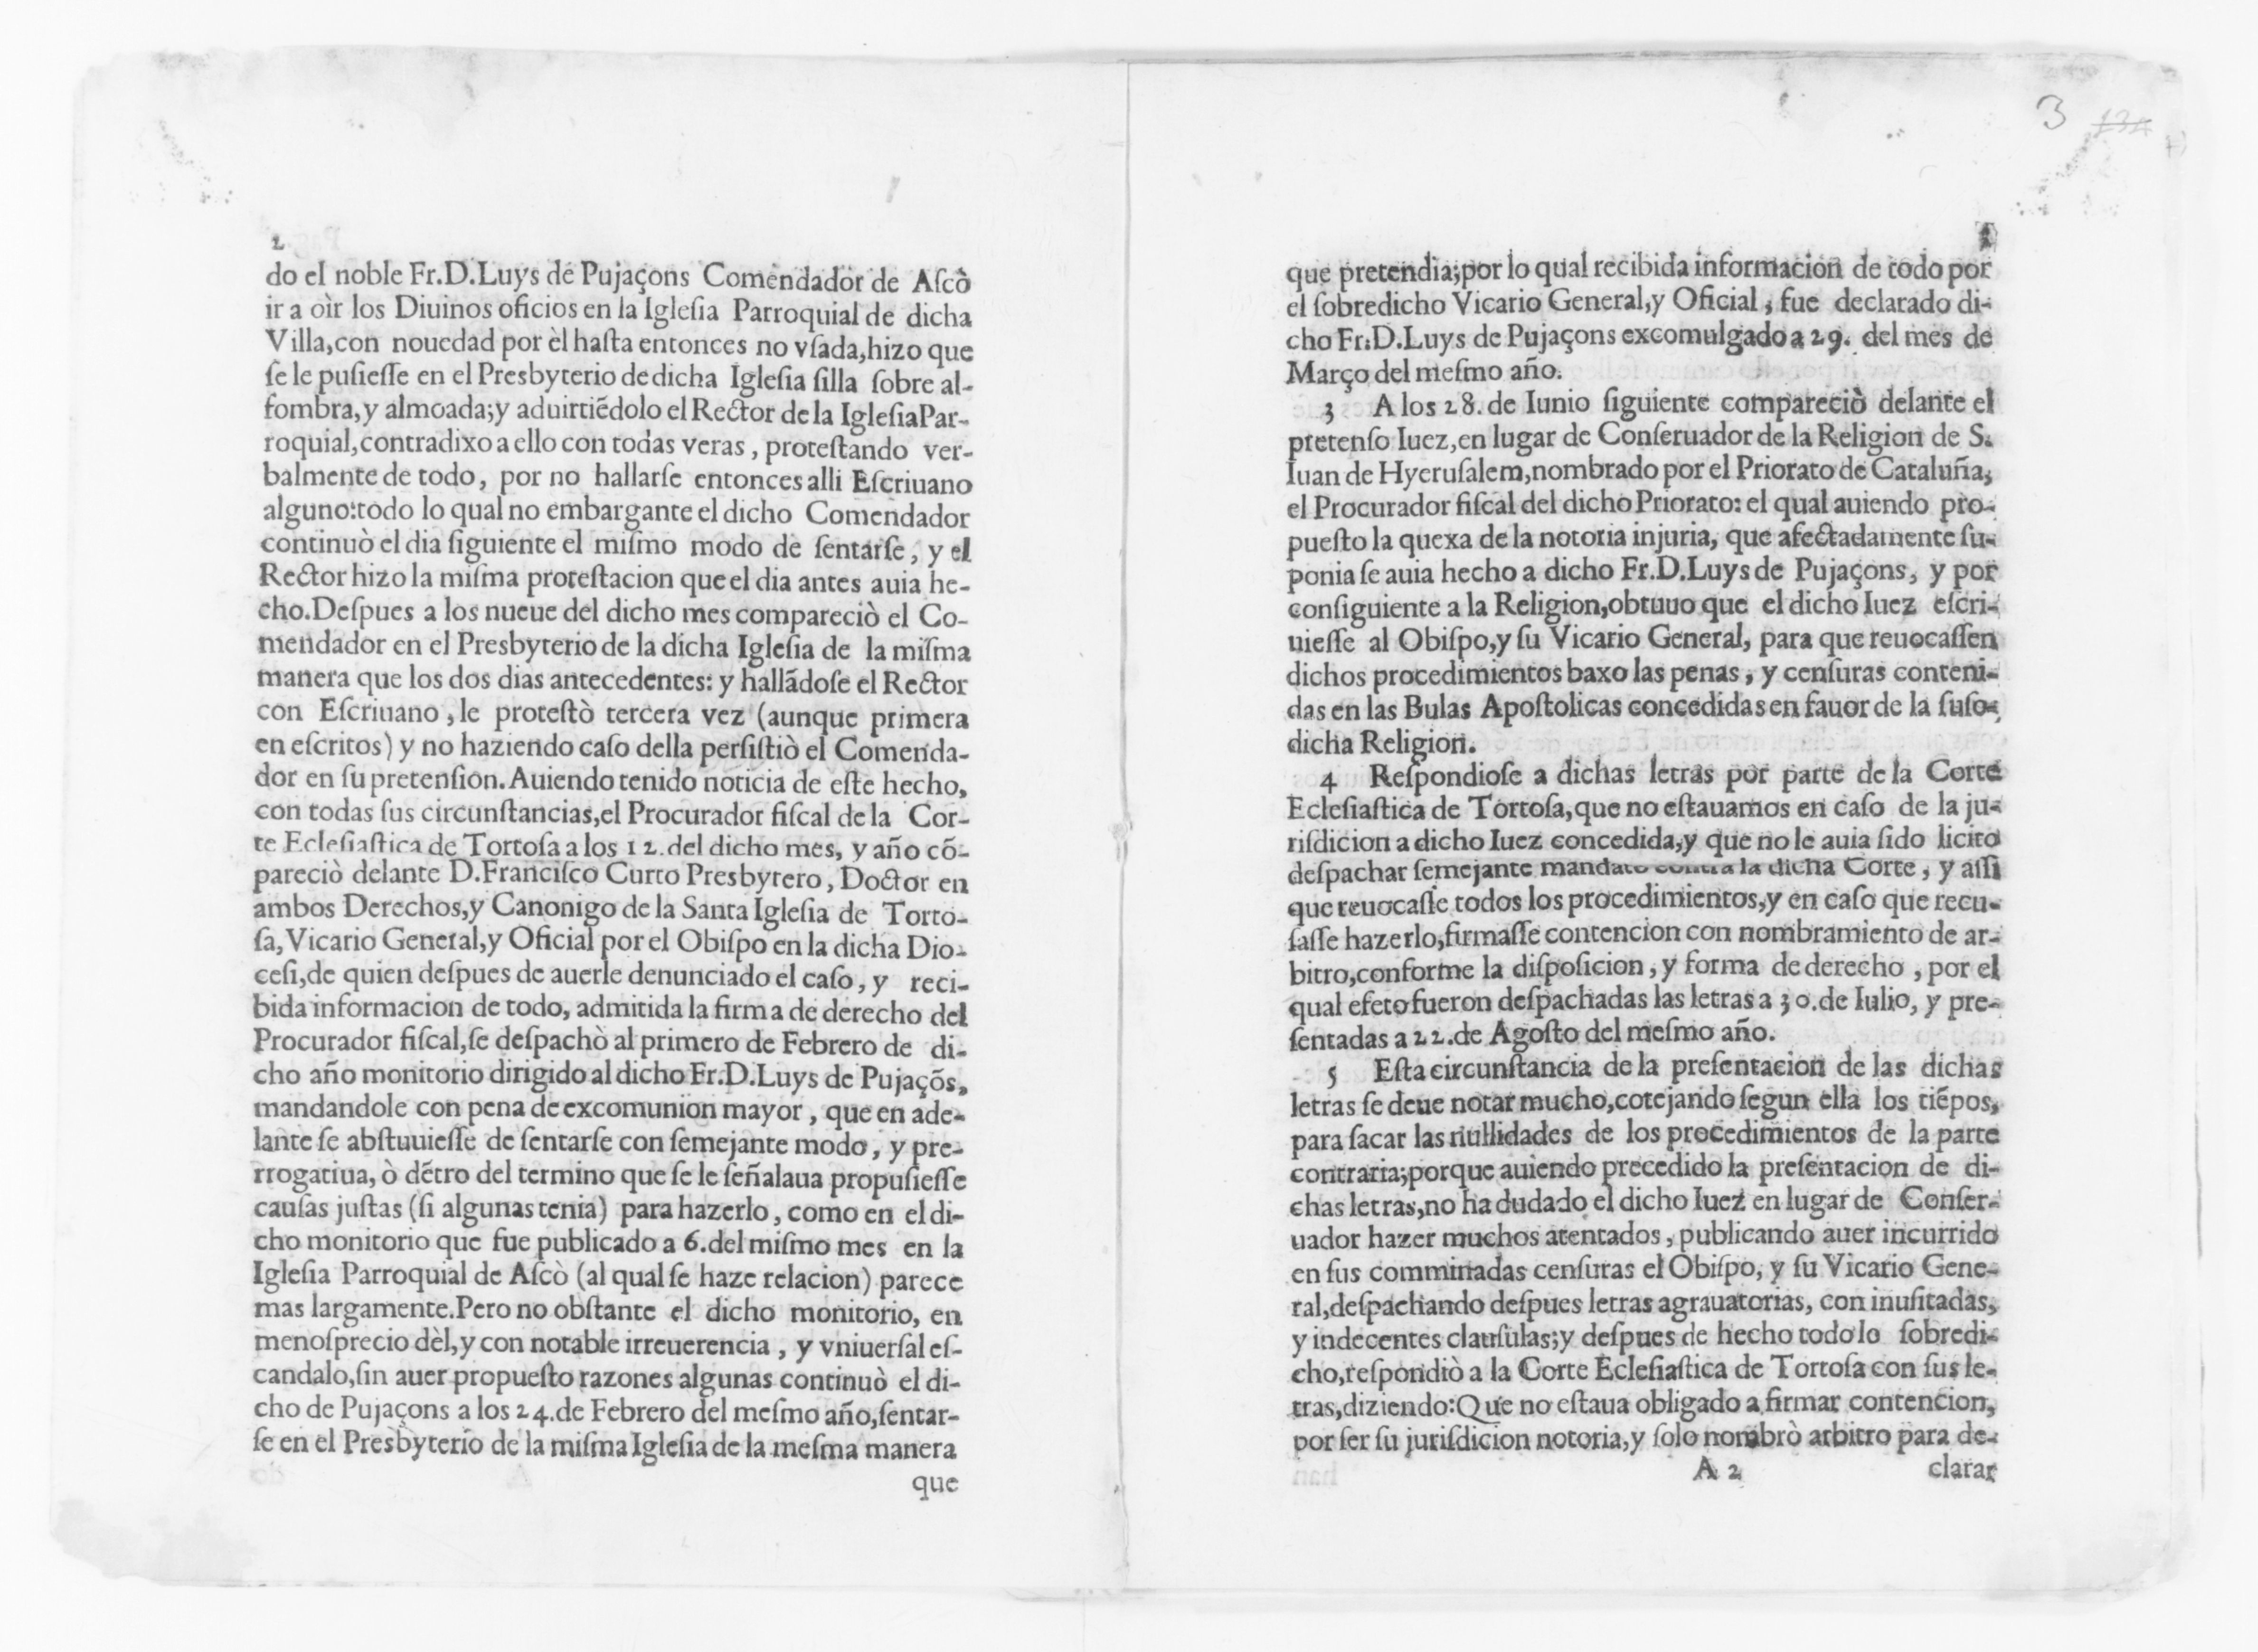 2
do el noble Fr.D.Luys de Pujaçons Comendador de Aſcò
ir a oìr los Diuinos oficios en la Igleſia Parroquial de dicha
Villa,con nouedad por èl haſta entonces no vſada,hizo que
ſe le puſieſſe en el Presbyterio de dicha Igleſia ſilla ſobre al-
fombra,y almoada;y aduirtiẽdolo el Rector de la IgleſiaPar-
roquial,contradixo a ello con todas veras , proteſtando ver-
balmente de todo, por no hallarſe entonces alli Eſcriuano
alguno:todo lo qual no embargante el dicho Comendador
continuò el dia ſiguiente el miſmo modo de ſentarſe, y el
Rector hizo la miſma proteſtacion que el dia antes auia he-
cho.Deſpues a los nueue del dicho mes compareciò el Co-
mendador en el Presbyterio de la dicha Igleſia de la miſma
manera que los dos dias antecedentes: y hallãdoſe el Rector
con Eſcriuano , le proteſtò tercera vez (aunque primera
en eſcritos) y no haziendo caſo della perſiſtiò el Comenda-
dor en ſu pretenſion.Auiendo tenido noticia de eſte hecho,
con todas ſus circunſtancias,el Procurador fiſcal de la Cor-
te Ecleſiaſtica de Tortoſa a los 12.del dicho mes, y año cõ-
pareciò delante D.Franciſco Curto Presbytero, Doctor en
ambos Derechos,y Canonigo de la Santa Igleſia de Torto-
ſa, Vicario General,y Oficial por el Obiſpo en la dicha Dio-
ceſi,de quien deſpues de auerle denunciado el caſo, y reci-
bida informacion de todo, admitida la firma de derecho del
Procurador fiſcal,ſe deſpachò al primero de Febrero de di-
cho año monitorio dirigido al dicho Fr.D.Luys de Pujaçõs,
mandandole con pena de excomunion mayor , que en ade-
lante ſe abſtuuieſſe de ſentarſe con ſemejante modo, y pre-
rrogatiua, ò dẽtro del termino que ſe le ſeñalaua propuſieſſe
cauſas juſtas (ſi algunas tenia) para hazerlo, como en el di-
cho monitorio que fue publicado a 6.del miſmo mes en la
Igleſia Parroquial de Aſcò (al qual ſe haze relacion) parece
mas largamente.Pero no obſtante el dicho monitorio, en
menoſprecio dèl,y con notable irreuerencia , y vniuerſal eſ-
candalo,ſin auer propueſto razones algunas continuò el di-
cho de Pujaçons a los 24.de Febrero del meſmo año,ſentar-
ſe en el Presbyterio de la miſma Igleſia de la meſma manera
que
3
que pretendia;por lo qual recibida informacion de todo por
el ſobredicho Vicario General,y Oficial, fue declarado di-
cho Fr.D.Luys de Pujaçons excomulgado a 29. del mes de
Março del meſmo año.
3 A los 28. de Iunio ſiguiente compareciò delante el
pretenſo Iuez,en lugar de Conſeruador de la Religion de S.
Iuan de Hyeruſalem,nombrado por el Priorato de Cataluña,
el Procurador fiſcal del dicho Priorato: el qual auiendo pro-
pueſto la quexa de la notoria injuria, que afectadamente ſu-
ponia ſe auia hecho a dicho Fr.D.Luys de Pujaçons, y por
conſiguiente a la Religion,obtuuo que el dicho Iuez eſcri-
uieſſe al Obiſpo,y ſu Vicario General, para que reuocaſſen
dichos procedimientos baxo las penas, y cenſuras conteni-
das en las Bulas Apoſtolicas concedidas en fauor de la ſuſo-
dicha Religion.
4 Reſpondioſe a dichas letras por parte de la Corte
Ecleſiaſtica de Tortoſa,que no eſtauamos en caſo de la ju-
riſdicion a dicho Iuez concedida,y que no le auia ſido licito
deſpachar ſemejante mandato contra la dicha Corte, y aſſi
que reuocaſſe todos los procedimientos,y en caſo que recu-
ſaſſe hazerlo,firmaſſe contencion con nombramiento de ar-
bitro,conforme la diſpoſicion, y forma de derecho , por el
qual efeto fueron deſpachadas las letras a 30.de Iulio, y pre-
ſentadas a 22.de Agoſto del meſmo año.
5 Eſta circunſtancia de la preſentacion de las dichas
letras ſe deue notar mucho,cotejando ſegun ella los tiẽpos,
para ſacar las nullidades de los procedimientos de la parte
contraria;porque auiendo precedido la preſentacion de di-
chas letras,no ha dudado el dicho Iuez en lugar de Conſer-
uador hazer muchos atentados, publicando auer incurrido
en ſus comminadas cenſuras el Obiſpo, y ſu Vicario Gene-
ral,deſpachando deſpues letras agrauatorias, con inuſitadas,
y indecentes clauſulas;y deſpues de hecho todo lo ſobredi-
cho,reſpondiò a la Corte Ecleſiaſtica de Tortoſa con ſus le-
tras,diziendo:Que no eſtaua obligado a firmar contencion,
por ſer ſu juriſdicion notoria,y ſolo nombrò arbitro para de-
A 2 clarar